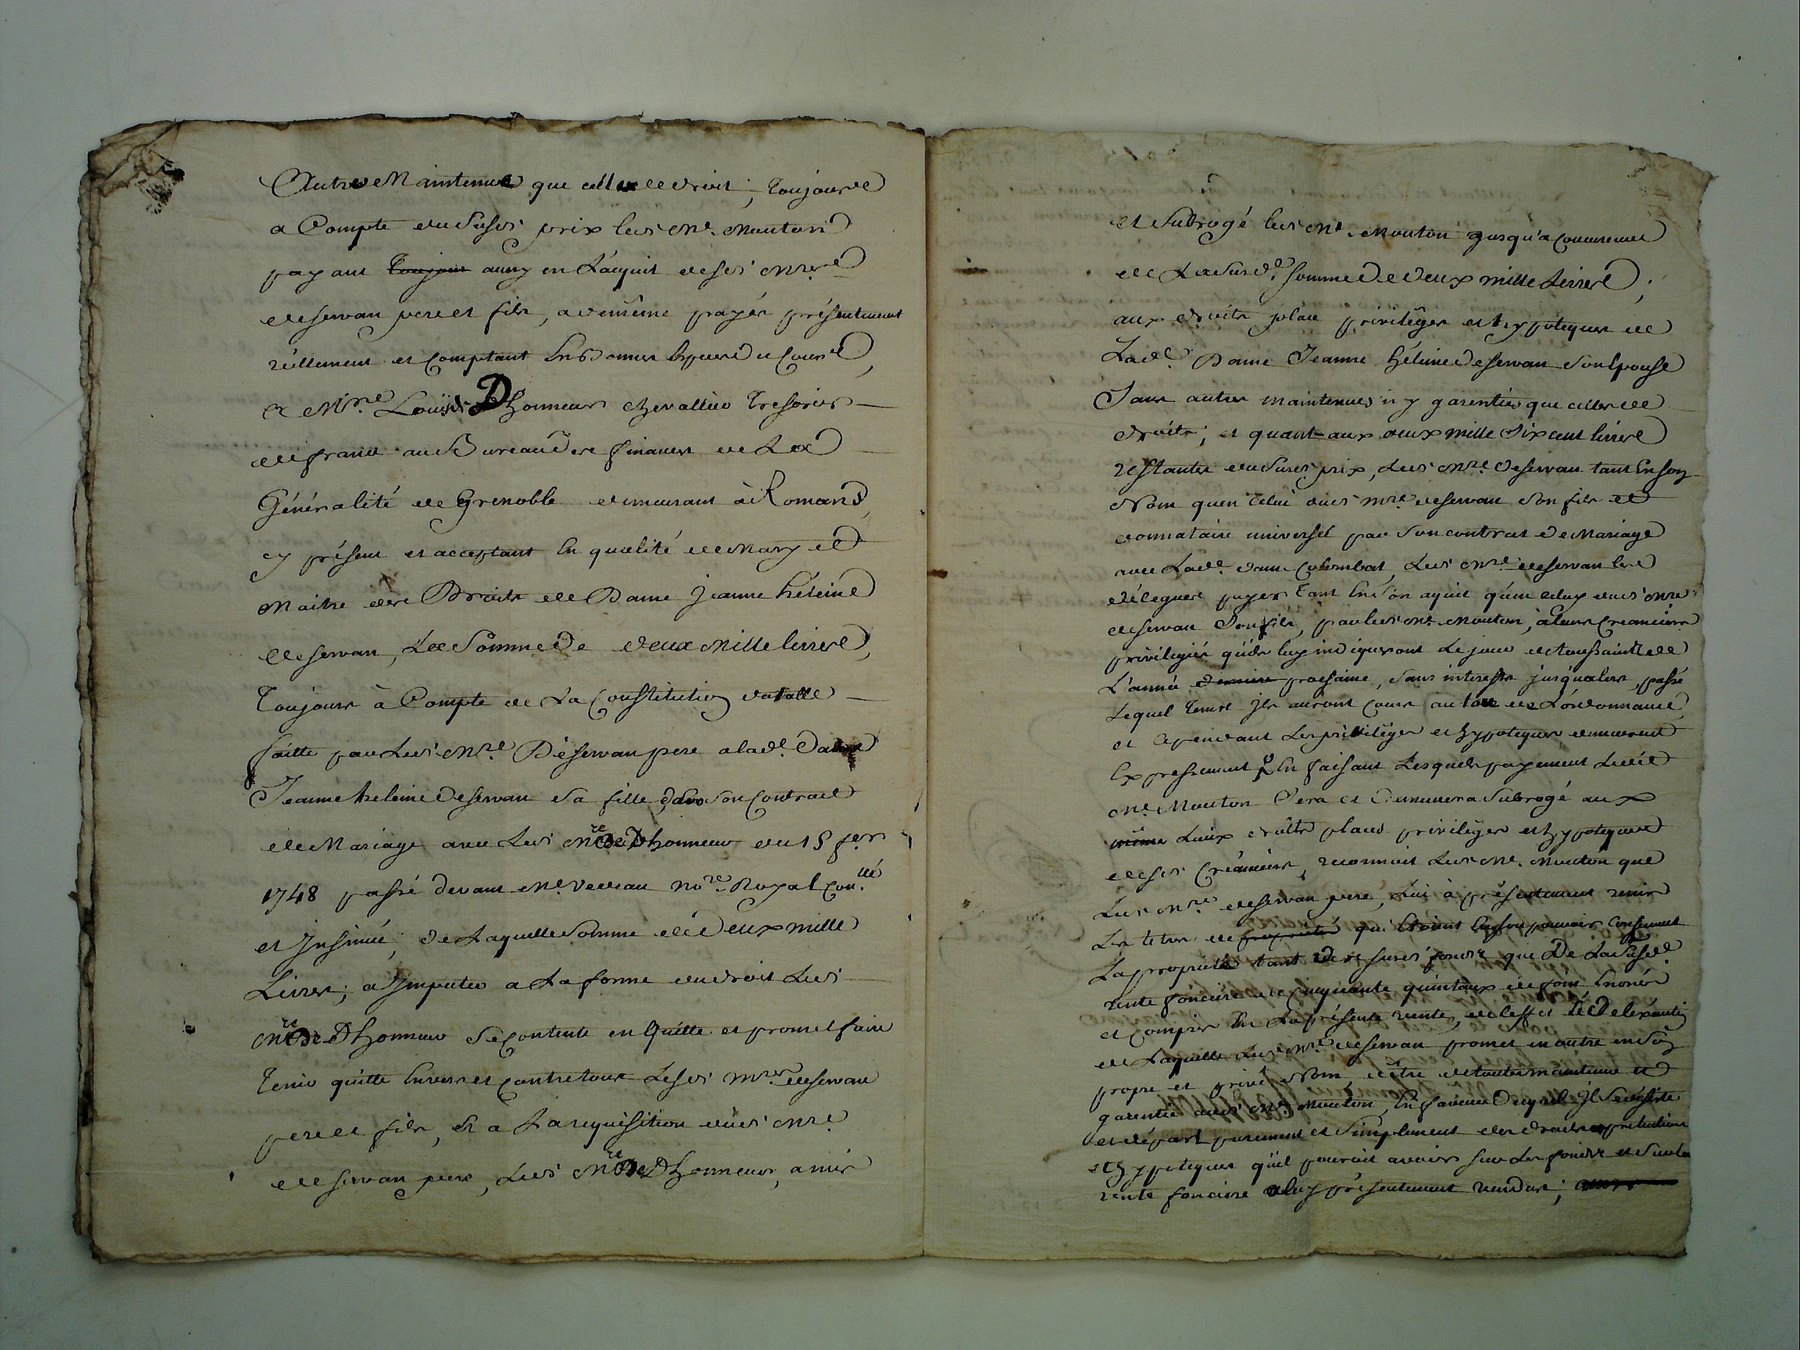 Autre Maintenue que celle de droit; toujours
a Compte du Susdt prix ledt Mr. Mouton
payant toujours aussy en L'acquit desdts Mrs.
deservan pere et fils, a de même payés présentement
réellement et Comptant En bonnes Especes du Cours,
a Mre. Loüis Dhonneur chevallier tresorier
de france au Bureau des finances de La
Généralité de Grenoble demeurant à Romans,
cy présent et acceptant En qualité de Mary et
Maitre des Droits de Dame Jeanne héleine
deservan, La Somme de deux Mille livres,
toujours à Compte de La Constitution dotalle
faitte par Ledt Mre. Déservan pere a lade. Dame
Jeanne heleine deservan sa fille dans son Contract
de Mariage avec Ledt Mre De Dhonneur du 15 fer
1748 passé devant Me. Nore Royal
et Insinué; de Laquelle Somme de Deux mille
Livres, a Imputer a La forme du droit Ledt
Mre De Dhonneur Se Contente en Quitte et promet faire
tenir quitte Envers et contre tous Lesdts Mrs. deservan
pere et fils, et a La requisition dudt Mre.
deservan pere, Ledt Mre De Dhonneur, a mis
et Subrogé ledt Mr. Mouton jusqu'a Concurence
de La Susde. somme de deux mille Livres;
aux droits place privilèges et hypoteques de
Lade. Dame Jeanne héleine deservan Son Epouse
Sans autres maintenues ny garenties que celles de
droits; et quant aux deux mille Six cent livres
restantes du Susdt prix, Ledt Mre. deservan tant En son
Nom qu'en celui dudt Mre. deservan son fils et
donnataire universel par Son contrat de Mariage
avec Lade. dame Colombat, Ledt Mre. deservan les
délégues payer tant En Son aquit qu'en celuy dudt Mre
deservan Son fils, par ledt Mr. Mouton, à Leurs Creanciers
privilegiés qu'ils luy indiqueront Le jour de toussaints de
L'année derniere prochaine, Sans interests jusqu'alors, passé
Lequel tems Ils auront Cours au taux de L'ordonnance,
et Cependant Les privilèges et hypoteques demeurent
Expressement En faisant Lesquels payement Ledt
Mr. Mouton Sera et Demeurera Subrogé aux
même Lieux droits places privilèges et hypoteques
desdts Créanciers, reconnoit Ledt Mr. Mouton que
Ledt Mre. deservan pere, Lui à présentement remis
Les titres de propriété qui Etoient En son pouvoir Concernant
La propriété tant des susdts fonds que De La Susde.
rente fonciere de Cinquante quintaux de foin Enoncée
et comprise En La présente vente, de L'effet et de
de Laquelle Ledt Mre. deservan promet en outre en Son
propre et privé Nom d'être de toute maintenue et
garentie audt Mr. Mouton, En faveur Duquel Il Se désiste
et départ purement et Simplement des droits pretentions
et hypoteques qu'il pouroit avoir Sur Les fonds et Sur la
rente fonciere a luy présentement vendus;